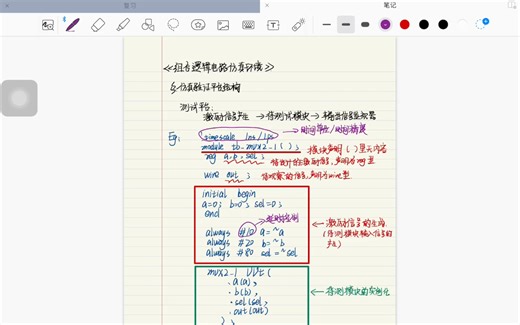 复习
笔记
《组合逻辑电路仿真环境》
仿真验证平台结构
测试平台:
激励信号产生 → 待测试模块 →
Eg: `timescale 1ns/1ps → 时间单位/时间精度
module tb_mux2_1 ( ); 模块声明( )里无内容
reg a,b,sel; 待设计的激励信号,声明为reg型
wire out; 待观察的信号,声明为wire型
initial begin
a=0; b=0; sel=0;
end
延时控制
always #10 a=~a
always #20 b=~b
always #80 sel=~sel
激励信号的生成
(待测模块输入信号的产生)
mux2_1 UUT(
.a(a),
.b(b),
.sel(sel),
.out(out)
);
待测模块的实例化